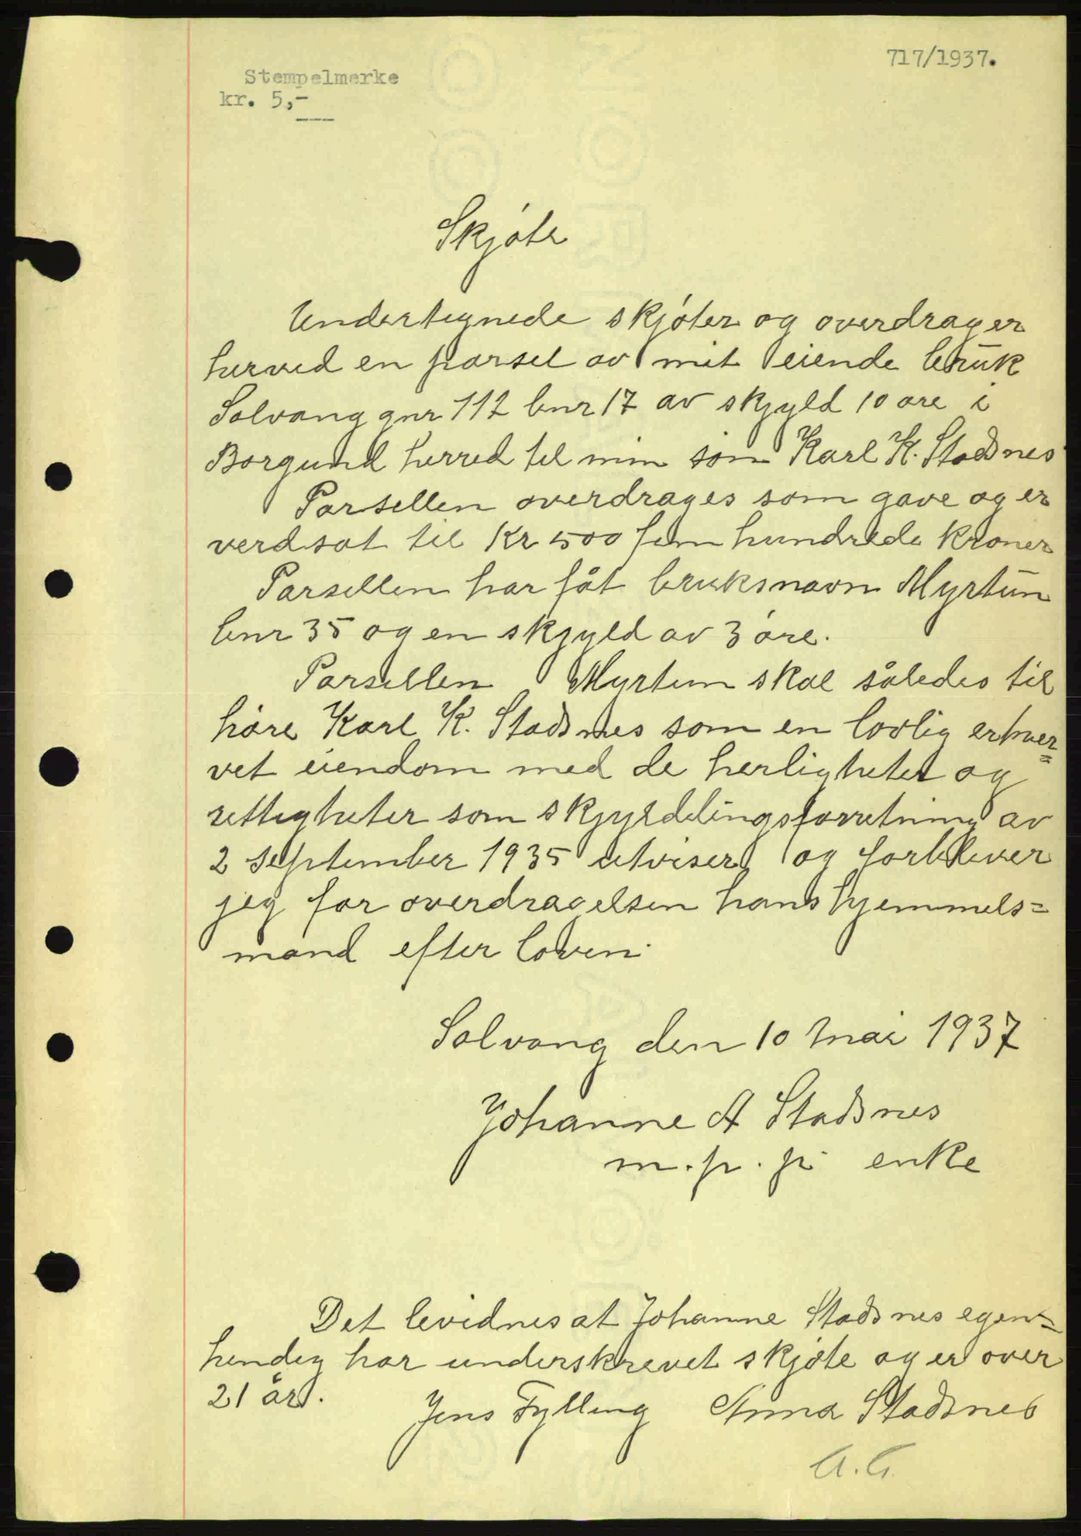 717/1937.
Stempelmerke
kr. 5,-
Skjøte
Undertegnede skjøter og overdrager
herved en parsel av mit eiende bruk
Solvang gnr 112 bnr 17 av skjyld 10 øre i
Borgund herred til min søn Karl K. Stadsnes
Parsellen overdrages som gave og er
verdsat til Kr 500 fem hundrede kroner
Parsellen har fåt bruksnavn Myrtun
bnr 35 og en skjyld av 3 øre.
Parsellen Myrtun skal således til
høre Karl K. Stadsnes som en lovlig erhver=
vet eiendom med de herligheter og
rettigheter som skjylddelingsforretning av
2 september 1935 utviser, og forbliver
jeg for overdragelsen hans hjemmels=
mand efter loven.
Solvang den 10 mai 1937
Johanne A Stadsnes
m.p.p. enke
Det bevidnes at Johanne Stadsnes egen=
hendig har underskrevet skjøte og er over
21 år.
Jens Fylling Anna Stadsnes